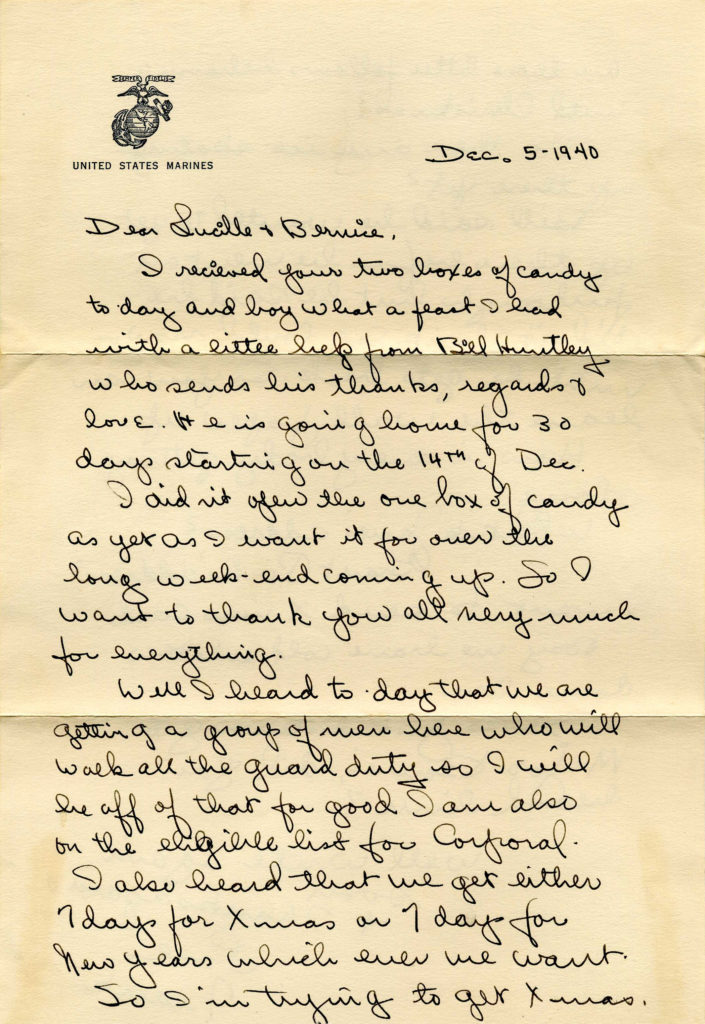 UNITED STATES MARINES
Dec. 5-1940
Dear Lucille & Bernice,
I recieved your two boxes of candy
to-day and boy what a feast I had
with a little help from Bill Huntley
who sends his thanks, regards &
love. He is going home for 30
days starting on the 14TH of Dec.
I did n't open the one box of candy
as yet as I want it for over the
long week-end coming up. So I
want to thank you all very much
for everything.
Well I heard to-day that we are
getting a group of men here who will
walk all the guard duty so I will
be off of that for good I am also
on the eligible list for Corporal.
I also heard that we get either
7 days for Xmas or 7 day for
New Years which ever we want.
So I'm trying to get Xmas.